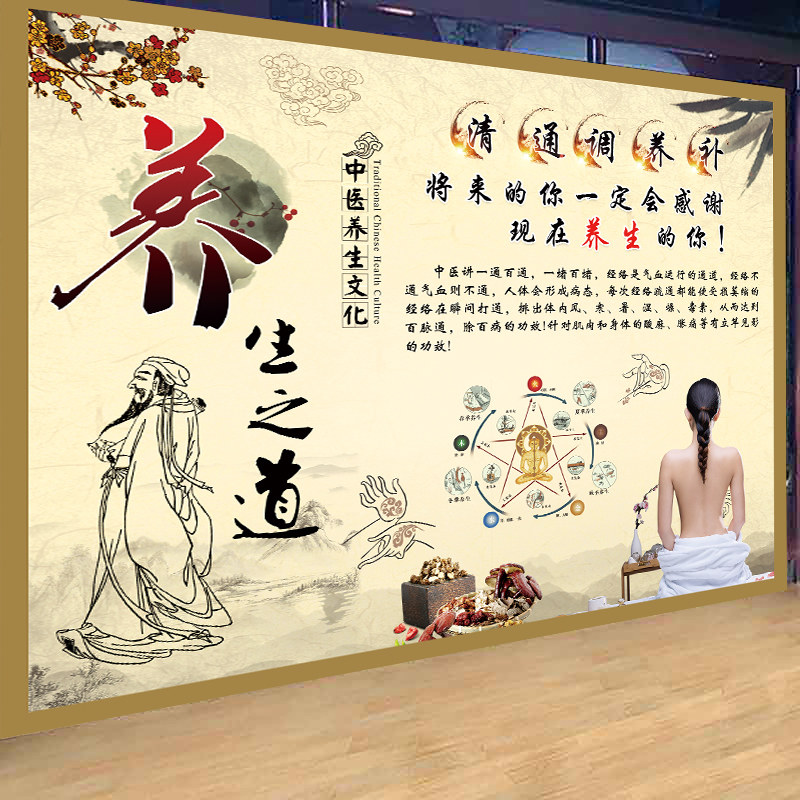 养
生之道
中医养生文化
Traditional Chinese Health Culture
清通调养补
将来的你一定会感谢
现在养生的你！
中医讲一通百通，一绪百绪，经络是气血运行的通道，经络不
通气血则不通，人体会形成病态，每次经络疏通都能使受损萎缩的
经络在瞬间打通，排出体内风、寒、暑、湿、燥、毒素，从而达到
百脉通，除百病的功效!针对肌肉和身体的酸麻、胀痛等有立竿见影
的功效!
春季养生
夏季养生
冬季养生
秋季养生